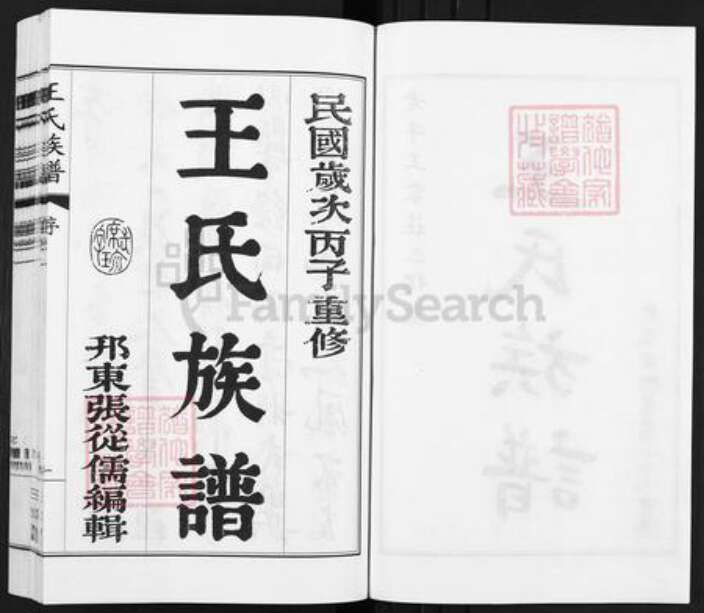 民國歲次丙子重修
王氏族譜
邦東張從儒編輯
王氏族譜
序
FamilySearch